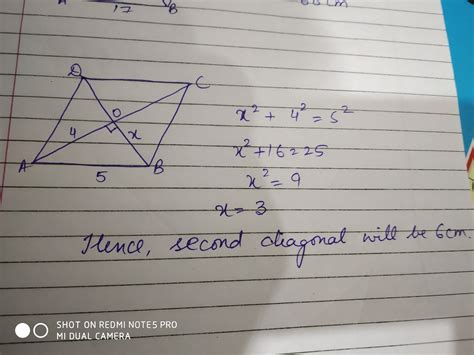 A 17 B
cm
D
C
O
4
x
A
5
B
x² + 4² = 5²
x² + 16 = 25
x² = 9
x = 3
Hence, second diagonal will be 6cm.
SHOT ON REDMI NOTE5 PRO
MI DUAL CAMERA